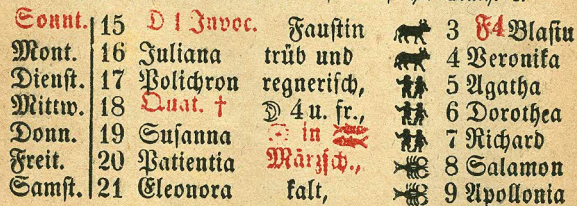 Sonnt. 15 D 1 Invoc. Faustin 3 F4 Blasiu
Mont. 16 Juliana trüb und 4 Veronika
Dienst. 17 Polichron regnerisch, 5 Agatha
Mittw. 18 Quat. † ☽ 4 u. fr., 6 Dorothea
Donn. 19 Susanna ☉ in ♓ 7 Richard
Freit. 20 Patientia Märzsch., 8 Salamon
Samst. 21 Eleonora kalt, 9 Apollonia